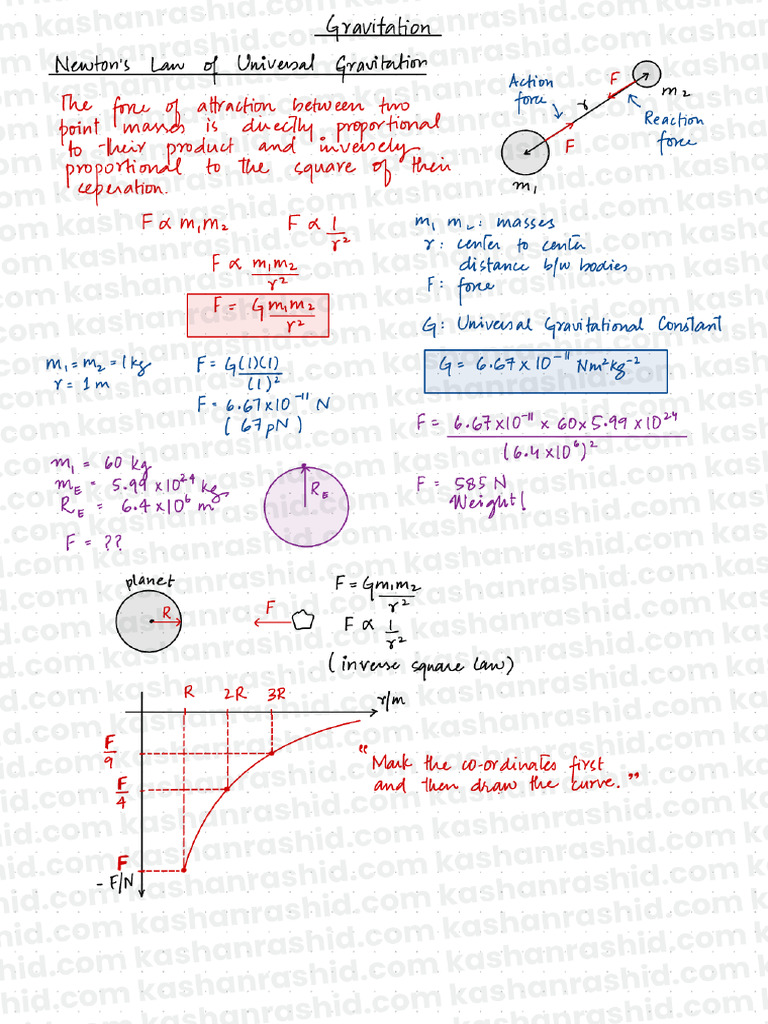 Gravitation
Newton's Law of Universal Gravitation
The force of attraction between two
point masses is directly proportional
to their product and inversely
proportional to the square of their
seperation.
Action
force
F
r
m2
Reaction
force
F
m1
F ∝ m1m2
F ∝ 1/r²
F ∝ m1m2/r²
F = G m1m2/r²
m1 m2: masses
r: center to center
distance b/w bodies
F: force
G: Universal Gravitational Constant
G = 6.67 × 10⁻¹¹ Nm²kg⁻²
m1 = m2 = 1kg
r = 1m
F = G(1)(1)/(1)²
F = 6.67×10⁻¹¹ N
(67pN)
m1 = 60 kg
mE = 5.99 × 10²⁴ kg
RE = 6.4 × 10⁶ m
F = ??
RE
F = 6.67×10⁻¹¹ × 60 × 5.99 × 10²⁴/(6.4×10⁶)²
F = 585 N
Weight!
planet
R
F
F = Gm1m2/r²
F ∝ 1/r²
(inverse square law)
R 2R 3R r/m
F/9
F/4
F
- F/N
"Mark the co-ordinates first
and then draw the curve."
kashanrashid.com